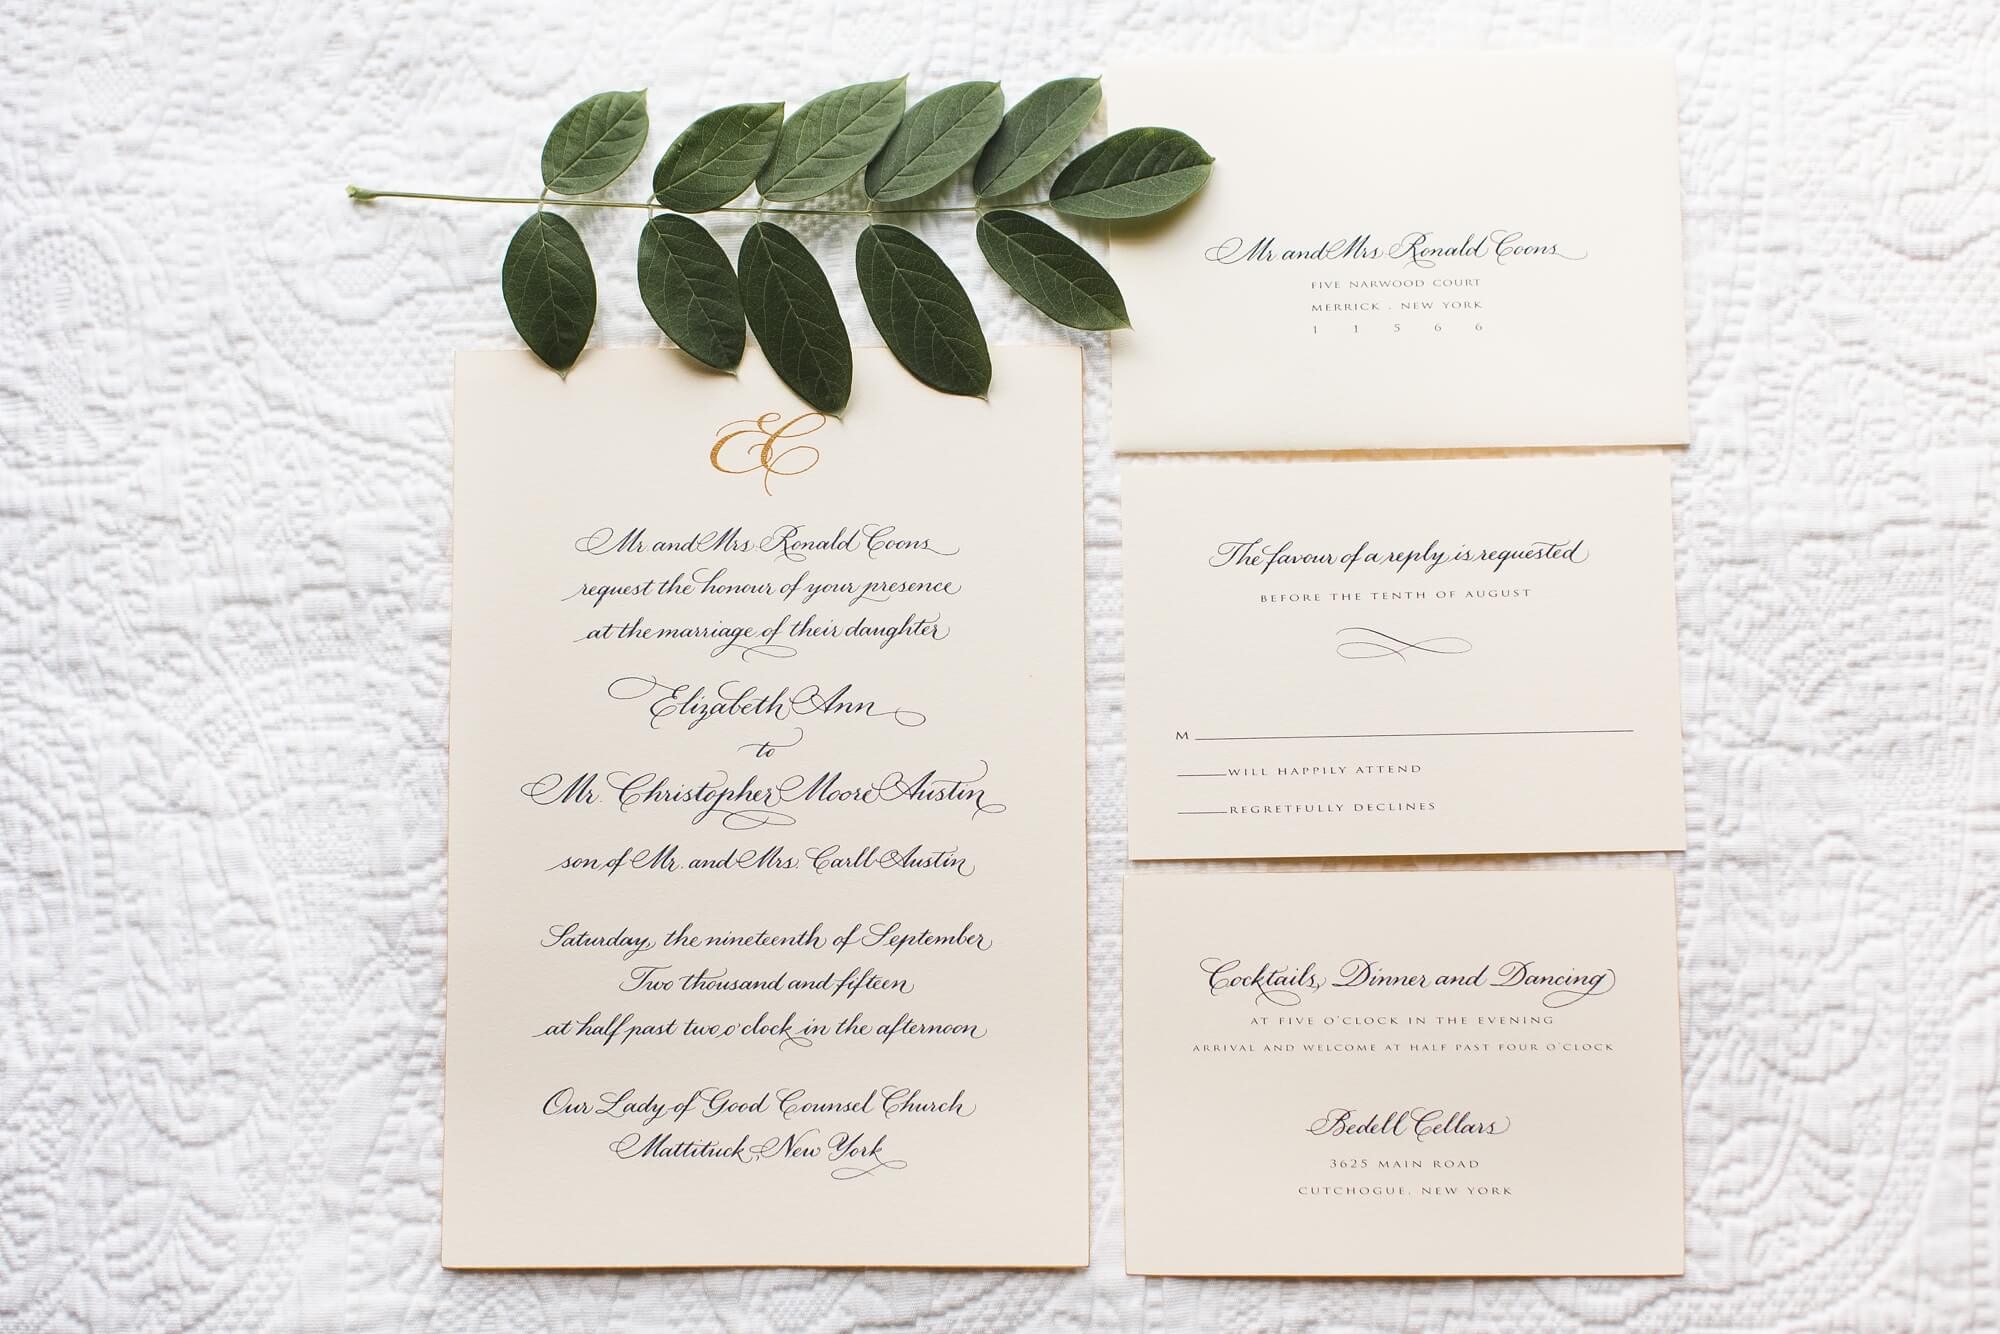 EC
Mr. and Mrs. Ronald Coons
request the honour of your presence
at the marriage of their daughter
Elizabeth Ann
to
Mr. Christopher Moore Austin
son of Mr. and Mrs. Carll Austin
Saturday, the nineteenth of September
Two thousand and fifteen
at half past two o'clock in the afternoon
Our Lady of Good Counsel Church
Mattituck, New York
Mr and Mrs Ronald Coons
FIVE NARWOOD COURT
MERRICK . NEW YORK
1 1 5 6 6
The favour of a reply is requested
BEFORE THE TENTH OF AUGUST
M
WILL HAPPILY ATTEND
REGRETFULLY DECLINES
Cocktails, Dinner and Dancing
AT FIVE O'CLOCK IN THE EVENING
ARRIVAL AND WELCOME AT HALF PAST FOUR O'CLOCK
Bedell Cellars
3625 MAIN ROAD
CUTCHOGUE, NEW YORK